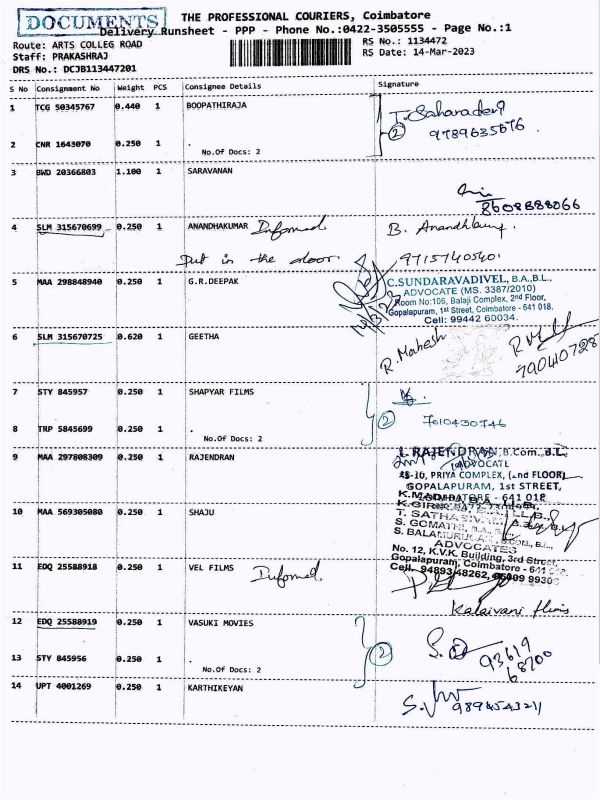 DOCUMENTS
THE PROFESSIONAL COURIERS, Coimbatore
Delivery Runsheet - PPP - Phone No.:0422-3505555 - Page No.:1
Route: ARTS COLLEG ROAD
RS No.: 1134472
Staff: PRAKASHRAJ
RS Date: 14-Mar-2023
DRS No.: DCJB113447201
S No Consignment No Weight PCS Consignee Details Signature
1 TCG 50345767 0.440 1 BOOPATHIRAJA
T. Sahanadevi
2 9789635676
2 CNR 1643070 0.250 1 .
No.Of Docs: 2
3 BWD 20366803 1.100 1 SARAVANAN
8608888066
4 SLM 315670699 0.250 1 ANANDHAKUMAR Informed B. Anandhkumar
Put in the door 9715740540
5 MAA 298848940 0.250 1 G.R.DEEPAK
14/3/23
C.SUNDARAVADIVEL, B.A.,B.L.,
ADVOCATE (MS. 3387/2010)
Room No:106, Balaji Complex, 2nd Floor,
Gopalapuram, 1st Street, Coimbatore - 641 018.
Cell: 99442 60034.
6 SLM 315670725 0.620 1 GEETHA
R. Mahesh
7904107287
7 STY 845957 0.250 1 SHAPYAR FILMS
2 7010430746
8 TRP 5845699 0.250 1 .
No.Of Docs: 2
9 MAA 297808309 0.250 1 RAJENDRAN
L. RAJENDRAN, B.Com.,B.L.
ADVOCATE
PRIYA COMPLEX, (2nd FLOOR)
GOPALAPURAM, 1st STREET,
COIMBATORE - 641 018
10 MAA 569305080 0.250 1 SHAJU
S. GOMATHI,
ADVOCATES
No. 12, K.V.K. Building, 3rd Street,
Gopalapuram, Coimbatore - 641
Cell. 94893 48262,
11 EDQ 25588919 0.250 1 VEL FILMS Informed
Kalaivani films
12 EDQ 25588918 0.250 1 VASUKI MOVIES
2 93619
68700
13 STY 845956 0.250 1 .
No.Of Docs: 2
14 UPT 4001269 0.250 1 KARTHIKEYAN
9894543211